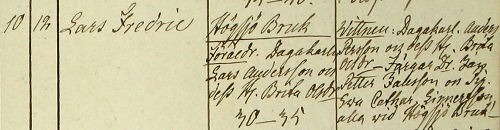 10 12 Lars Fredric
Högsjö Bruk
Föräldr. Dagakarl.
Lars Andersson och
dess H. Brita Olsdr
30-35
Wittnen: Dagakarl. Anders
Persson och dess H. Brita
Olsdr - Färgar Dr. Jan
Petter Jaensson och Pig.
Ewa Cathar.
alla wid Högsjö Bruk